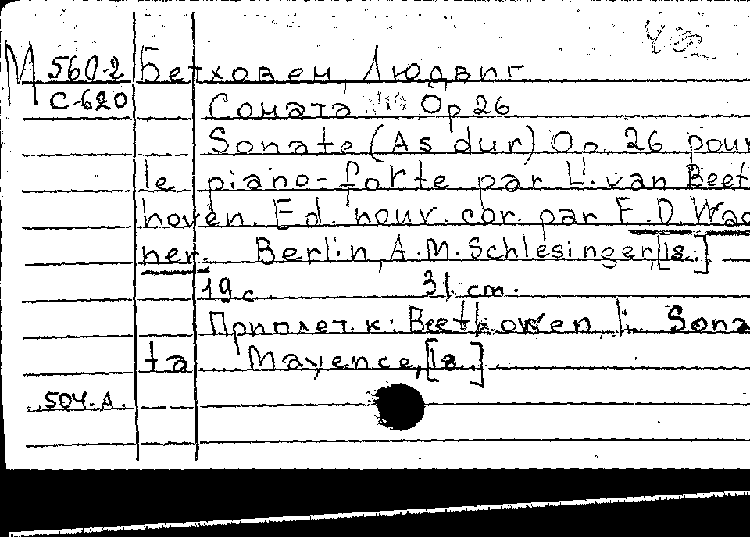 М 560-2 Бетховен, Людвиг
С-620 Соната Op 26
Sonate (As dur) Op. 26 pour
le piano-forte par L. van Beet
hoven. Ed. nouv. cor. par F.D. Wag
ner. Berlin, A.M. Schlesinger, [18..]
19 с. 31 cm.
Приплет. к: Beethowen, L. Sona
ta Mayence, [18..]
504-А.